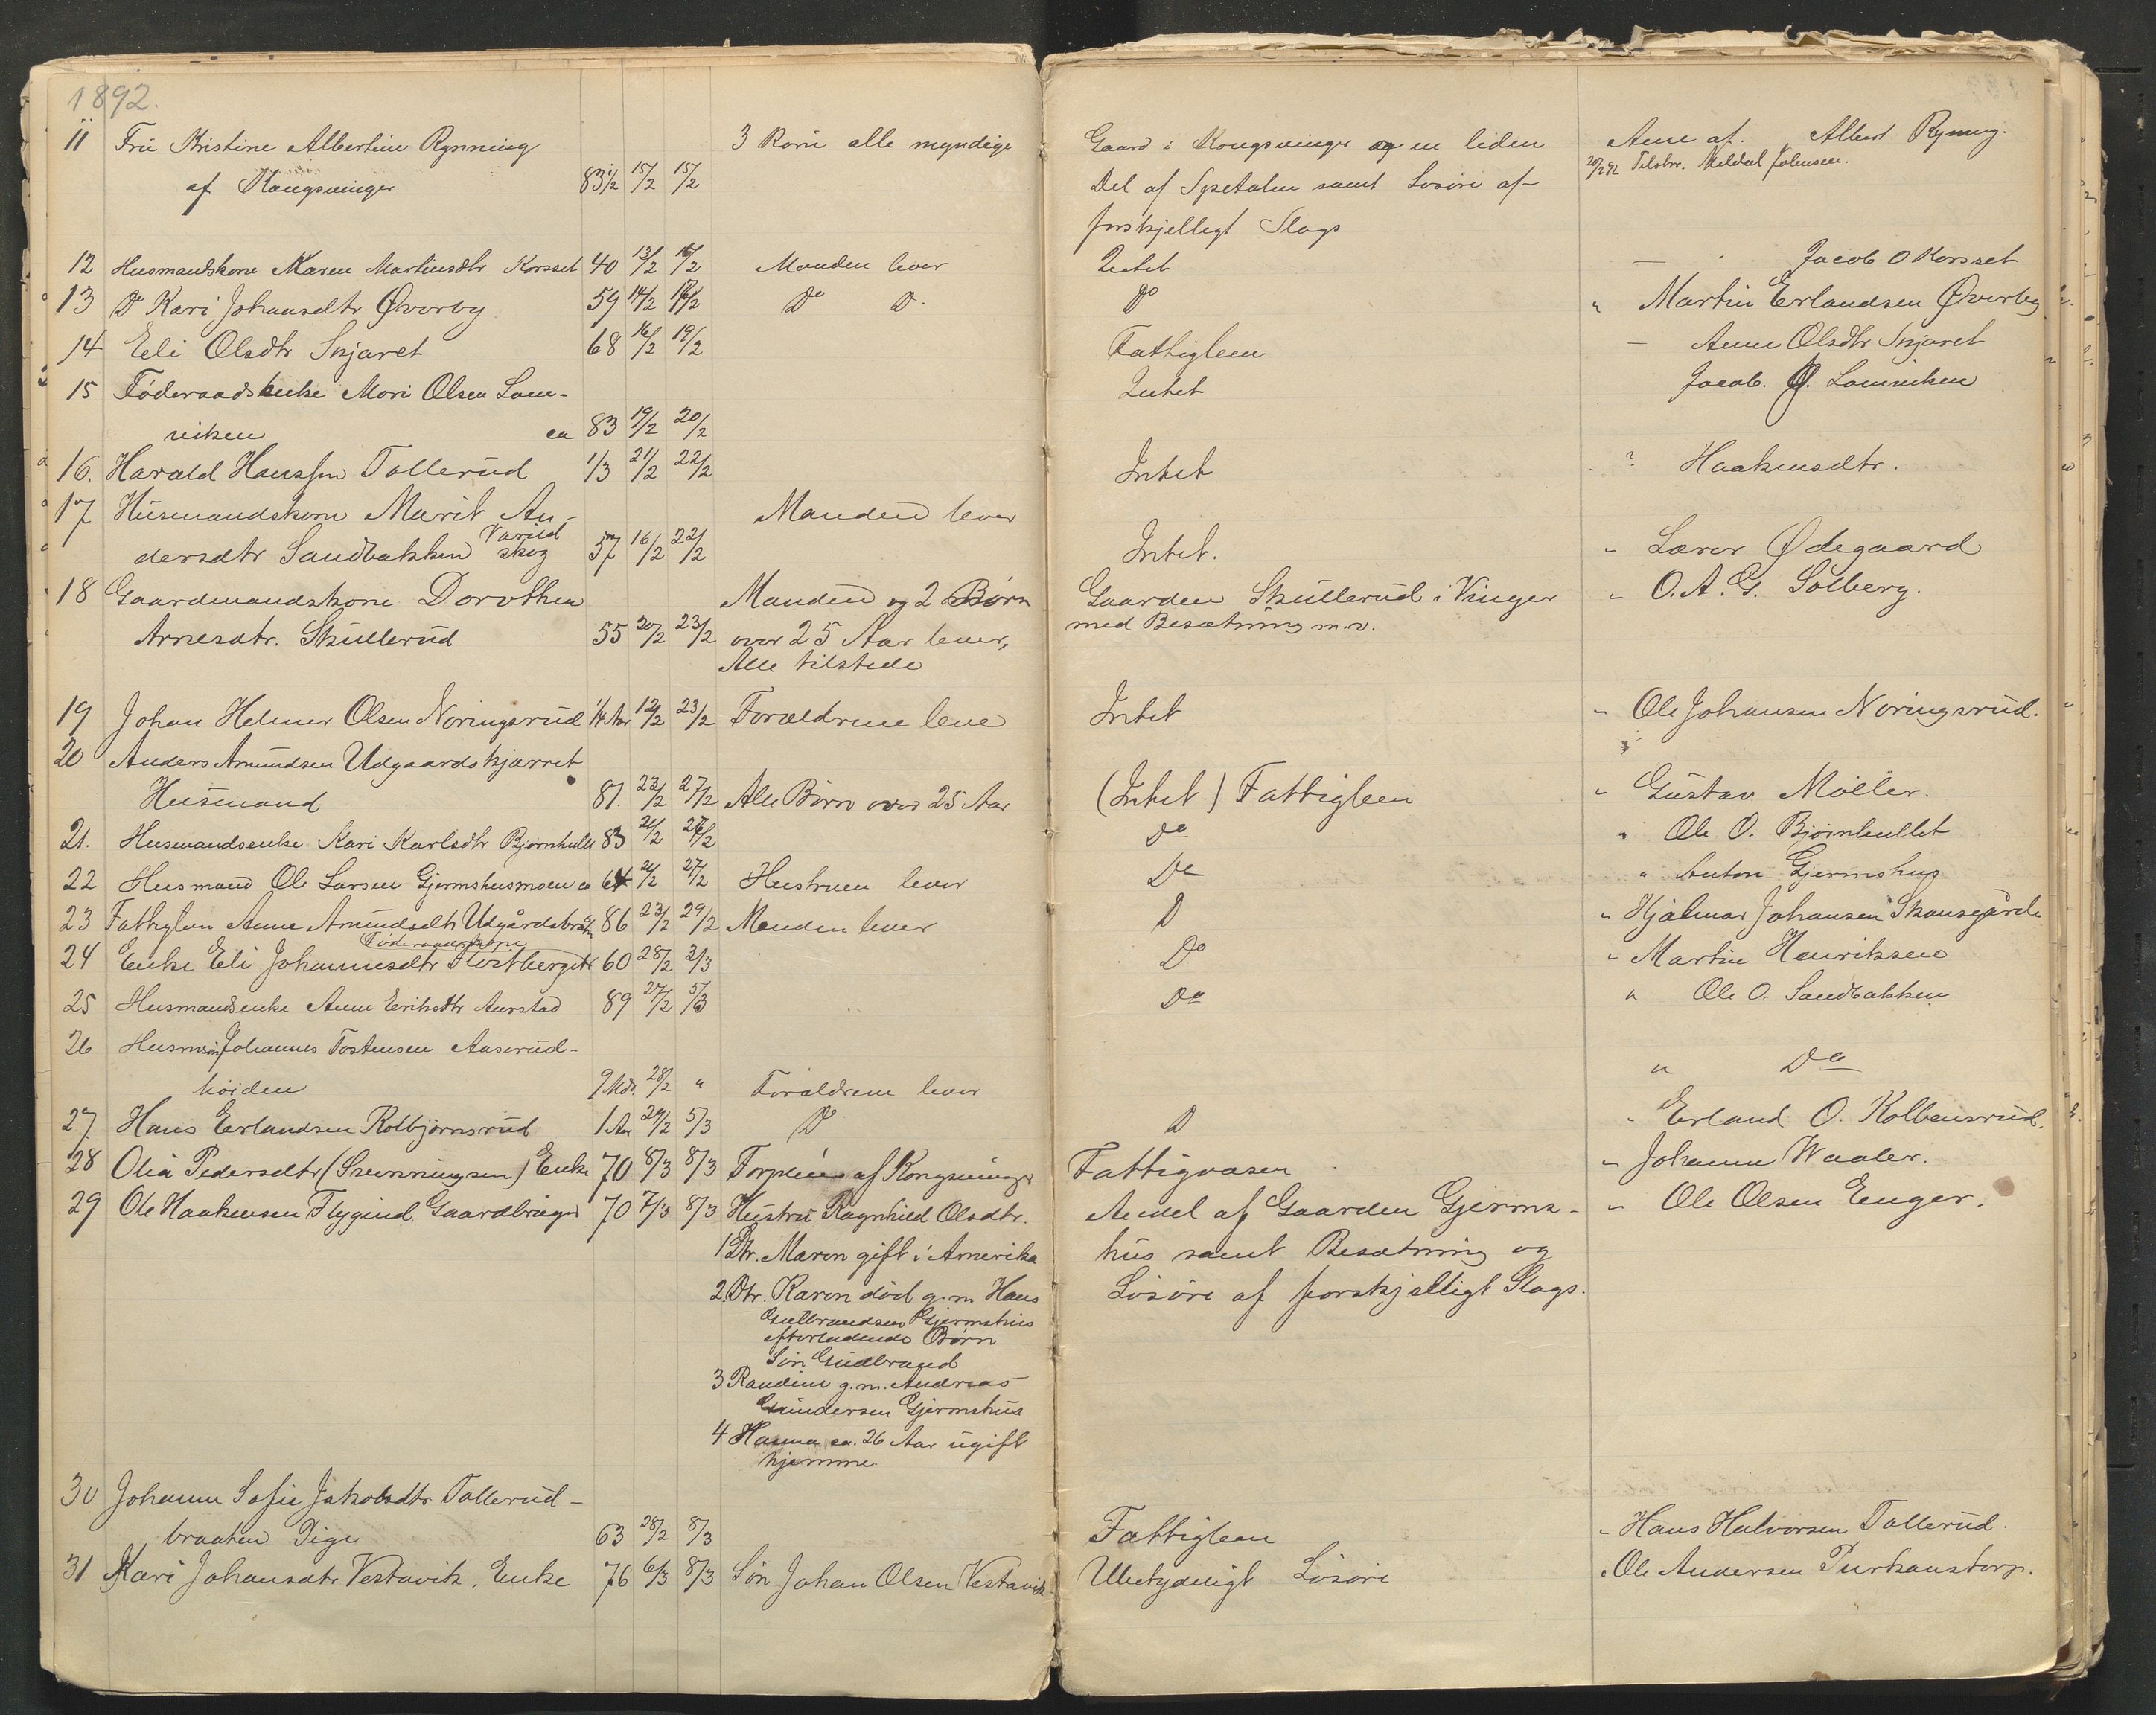 1892.
11 Fru Kristine Albertine Rynning 3 Børn alle myndige Gaard i Kongsvinger og en liden Anm af. Albert Rynning.
af Kongsvinger 83 1/2 15/2 15/2 Del af Spetalen samt Løsøre af 20/2 92 Tilstr. Meldal Johnsen.
forskjelligt Slags
12 Husmandskone Maren Martinsdtr Korsset 40 13/2 16/2 Manden lever Intet — Jacob O Korsset
13 Do Kari Johansdtr Øverby 59 14/2 17/2 Do D. Do " Martin Erlandsen Øverby
14 Eli Olsdtr Skjæret 68 16/2 19/2 Fattiglem — Anne Olsdtr Skjæret
15 Føderaadsenke Mari Olsen Lom- Intet Jacob. O. Lomviken
viken ca 83 19/2 20/2
16. Harald Hanssen Tollerud 1/3 21/2 22/2 Intet " ? Haakensdtr.
17 Husmandskone Marit An- Manden lever
dersdtr Sandbakken Varildskog 57 16/2 22/2 Intet. " Lærer Ødegaard
18 Gaardmandskone Dorothea Manden og 2 Børn Gaarden Skullerud i Vinger " O. A. G. Solberg.
Arnesdtr. Skullerud 55 20/2 23/2 over 25 Aar lever, med Besætning m.v.
Alle tilstede
19 Johan Helmer Olsen Noringsrud 1/4 Aar 12/2 23/2 Forældrene leve Intet " Ole Johansen Noringsrud.
20 Anders Amundsen Udgaardskjærret
Husmand 81. 23/2 27/2 Alle Børn over 25 Aar (Intet) Fattiglem " Gustav Møller.
21. Husmandsenke Kari Karlsdtr Bjørnhullet 83 21/2 27/2 Do " Ole O. Bjørnhullet
22 Husmand Ole Larsen Gjermshusmoen ca 64 21/2 27/2 Hustruen lever Do " Anton Gjermshus
23 Fattiglem Anne Amundsdtr Udgårdsbråten 86 23/2 29/2 Manden lever D " Hjalmar Johansen Skansegårde
24 Enke Eli Johannesdtr Flostberget 60 28/2 3/3 Do " Martin Henriksen
25 Husmandsenke Anne Eriksdtr Aurstad 89 27/2 5/3 Do " Ole O. Sandbakken
26 Husmsøn Johannes Tostensen Aaserud-
høiden 9 Mdr. 28/2 " Forældrene lever " Do
27. Hans Erlandsen Kolbjørnsrud 1 Aar 29/2 5/3 D D " Erland O. Kolbensrud.
28 Olia Pedersdtr (Svenningsen) Enke 70 8/3 8/3 af Kongsvinger Fattigvæsen " Johanne Waaler.
29 Ole Haakensen Flygind, Gaardbruger 70 7/3 8/3 Hustru Ragnhild Olsdtr. Andel af Gaarden Gjerms- " Ole Olsen Enger.
1 Dtr. Maren gift i Amerika hus samt Besætning og
2. Dtr. Karen død g.m. Hans Løsøre af forskjelligt Slags.
Gulbrandsen Gjermshus
efterladende Børn
Søn Gudbrand
3 Randine g.m. Andreas
Gundersen Gjermshus
4 Hanna ca. 26 Aar ugift
hjemme.
30 Johanne Sofie Jakobsdtr Tollerud-
braaten Pige 63 28/2 8/3 Fattiglem " Hans Halvorsen Tollerud.
31 Kari Johansdtr Vestavik, Enke 76 6/3 8/3 Søn Johan Olsen Vestavik Ubetydeligt Løsøre " Ole Andersen Purkanstorp.